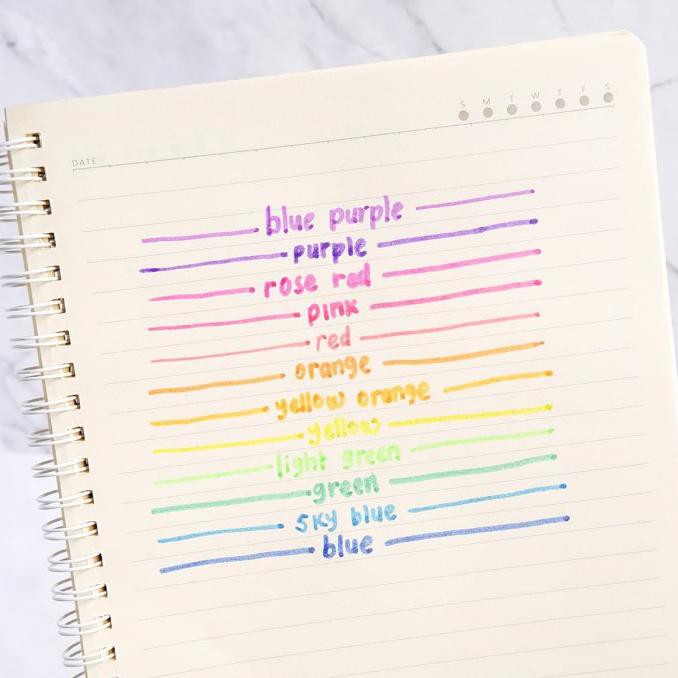 S M T W T F S
DATE
blue purple
purple
rose red
pink
red
orange
yellow orange
yellow
light green
green
sky blue
blue